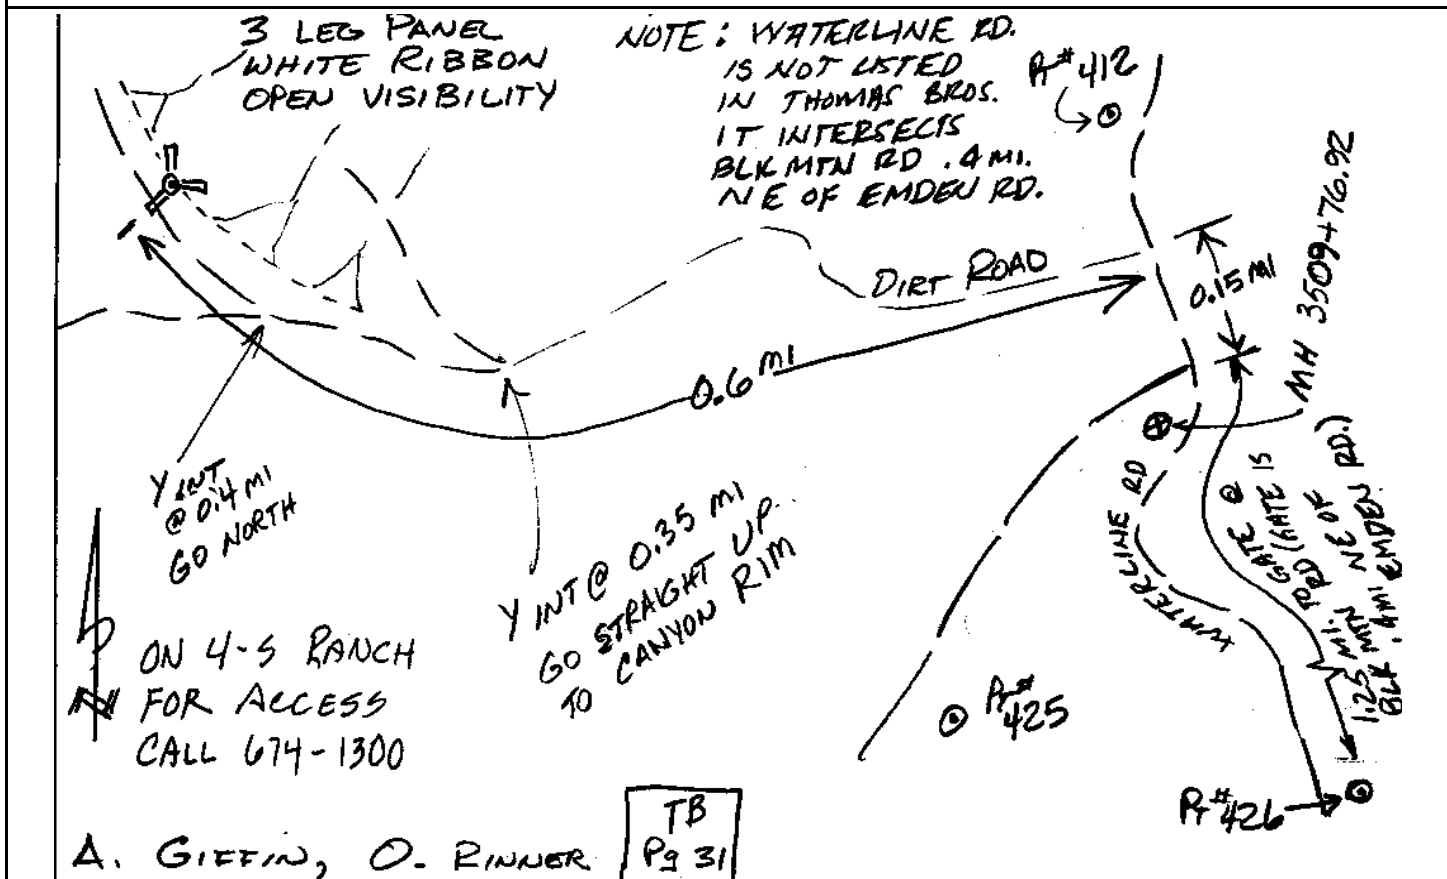 3 LEG PANEL
WHITE RIBBON
OPEN VISIBILITY
NOTE: WATERLINE RD.
IS NOT LISTED
IN THOMAS BROS.
IT INTERSECTS
BLK MTN RD .4 MI.
NE OF EMDEN RD.
PT# 412
MH 3509+76.92
0.15 MI
DIRT ROAD
0.6 MI
Y INT
@ 0.4 MI
GO NORTH
Y INT @ 0.35 MI
GO STRAIGHT UP
TO CANYON RIM
WATERLINE RD
GATE @
1.25 MI. TO RD (GATE IS
BLK MTN NE OF
.4 MI EMDEN RD.)
N
ON 4-S RANCH
FOR ACCESS
CALL 674-1300
PT#
425
PT#
426
A. GIFFIN, O. RINNER
TB
Pg 31